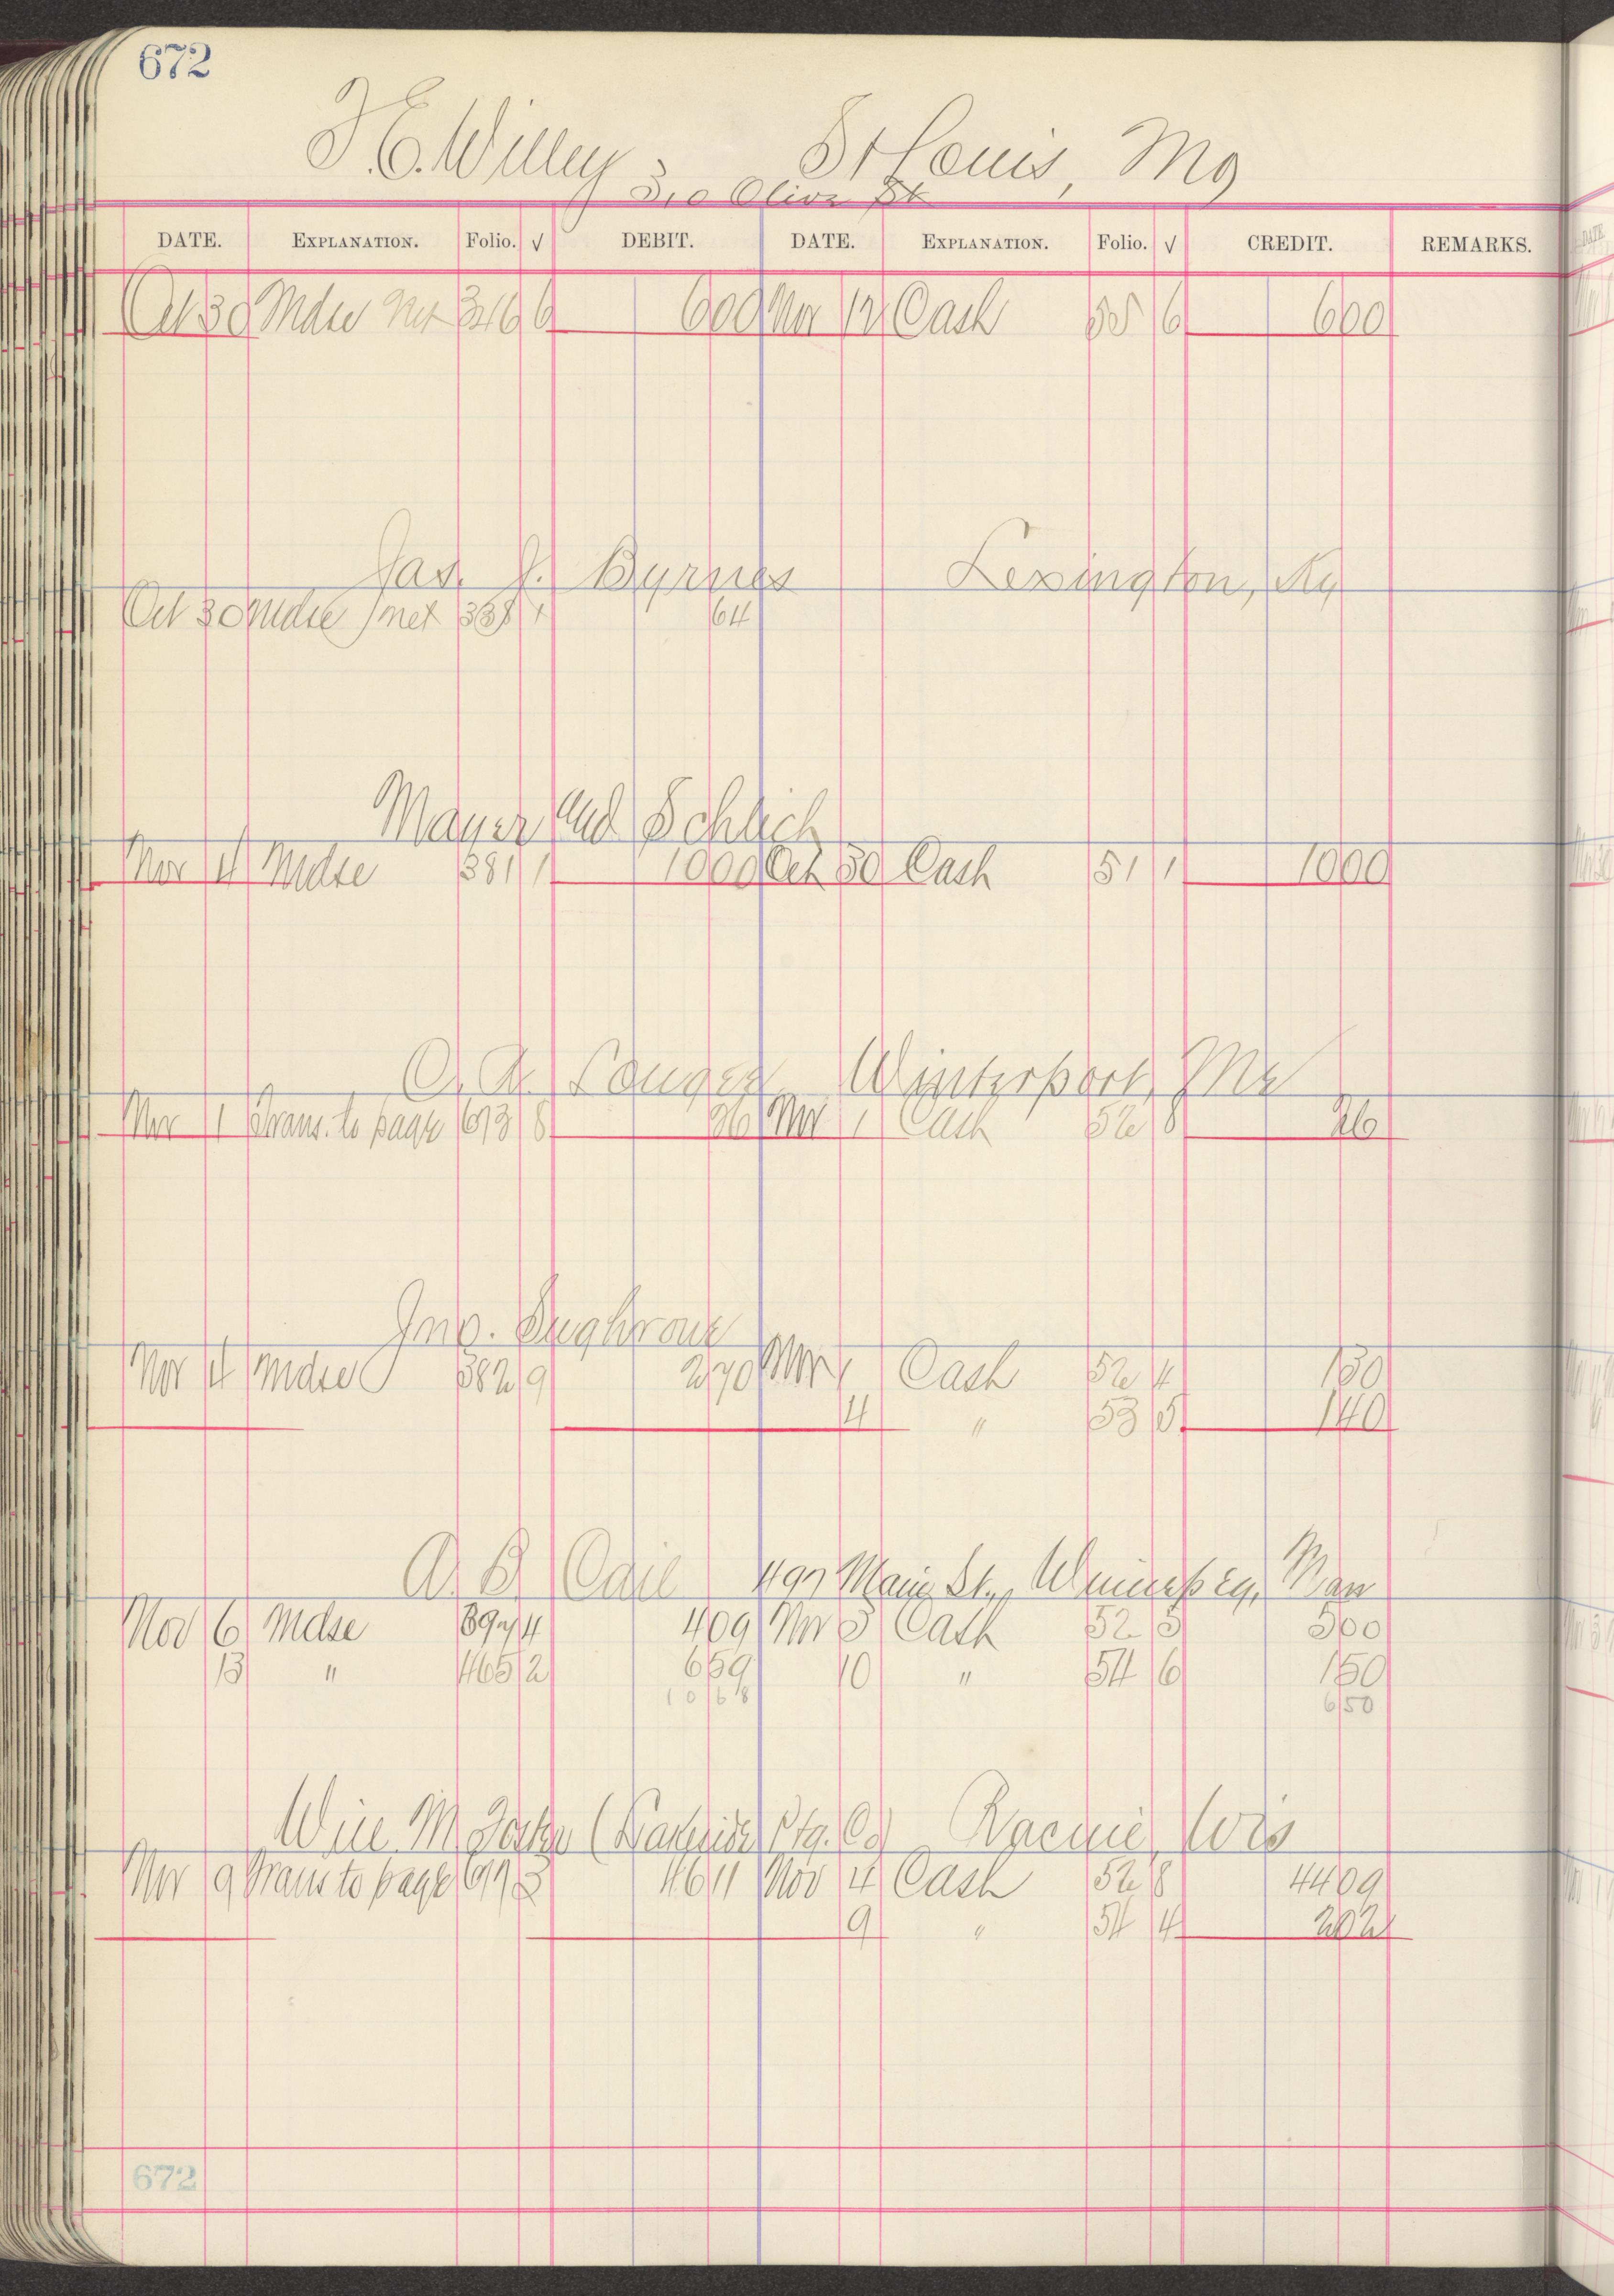 672
F. E. Willey St Louis, Mo
310 Olive St
DATE. EXPLANATION. Folio. √ DEBIT. DATE. EXPLANATION. Folio. √ CREDIT. REMARKS.
Oct 30 Mdse Net 346 6 600 Nov 12 Cash 55 6 600
Jas. J. Byrnes Lexington, Ky
Oct 30 Mdse net 338 1 64
Mayer and Schlich
Nov 4 Mdse 381 1 1000 Oct 30 Cash 51 1 1000
C. A. Winterport, Me
Nov 1 Trans. to page 673 8 26 Nov 1 Cash 52 8 26
Jno. Sughroue
Nov 4 Mdse 382 9 270 Nov 1 Cash 52 4 130
4 " 53 5 140
A. B. Cail 497 Main St., Winnipeg, Man
Nov 6 Mdse 397 4 409 Nov 3 Cash 52 3 500
13 " 465 2 659 10 " 54 6 150
1068 650
Will M. (Lakeside Ptg. Co) Racine, Wis
Nov 9 Trans to page 697 3 4611 Nov 4 Cash 52 8 4409
9 " 54 4 202
672